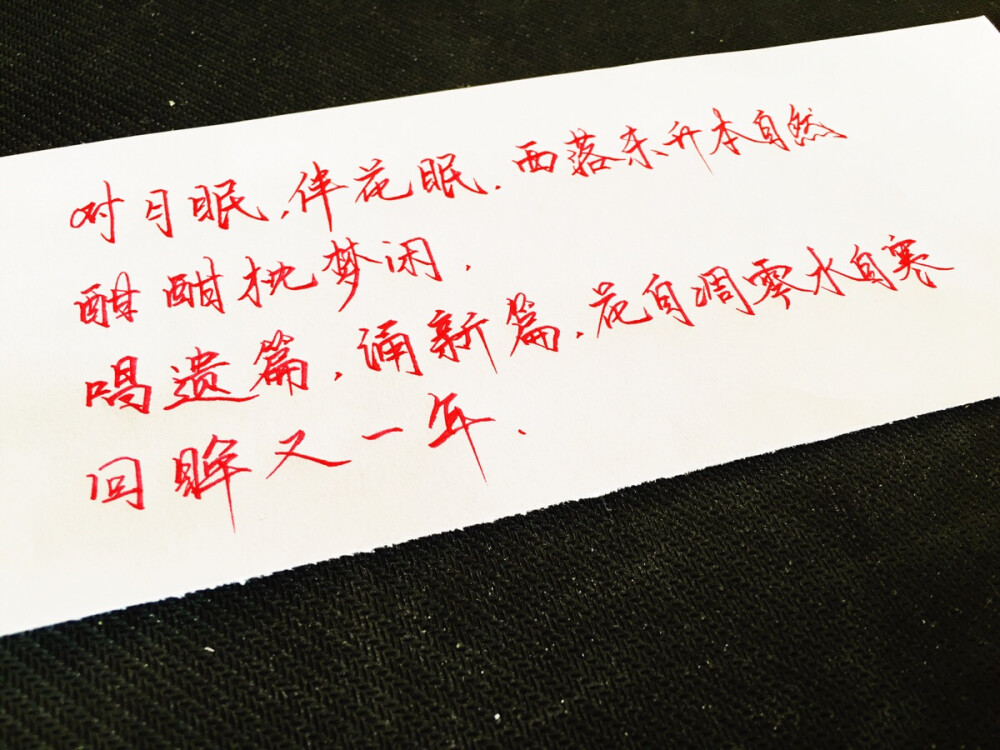 对月眠,伴花眠.西落东升本自然
酣酣枕梦闲.
唱遗篇,诵新篇,花自凋零水自寒
回眸又一年.